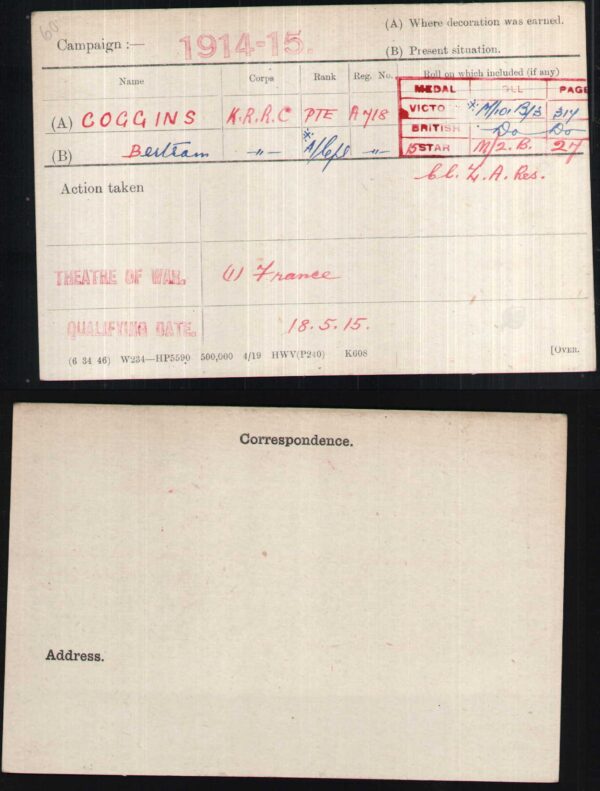 60
Campaign :— 1914-15.
(A) Where decoration was earned.
(B) Present situation.
Name Corps Rank Reg. No. Roll on which included (if any)
MEDAL ROLL PAGE
(A) COGGINS K.R.R.C PTE A 718 VICTO * M/101 B/3 317
BRITISH Do Do
(B) Bertram —"— * A/Cpl —"— 15STAR M/2.B. 27
Action taken Cl. Z. A. Res.
THEATRE OF WAR. (1) France
QUALIFYING DATE. 18.5.15.
(6 34 46) W234—HP5590 500,000 4/19 HWV(P240) K608 [OVER.
Correspondence.
Address.